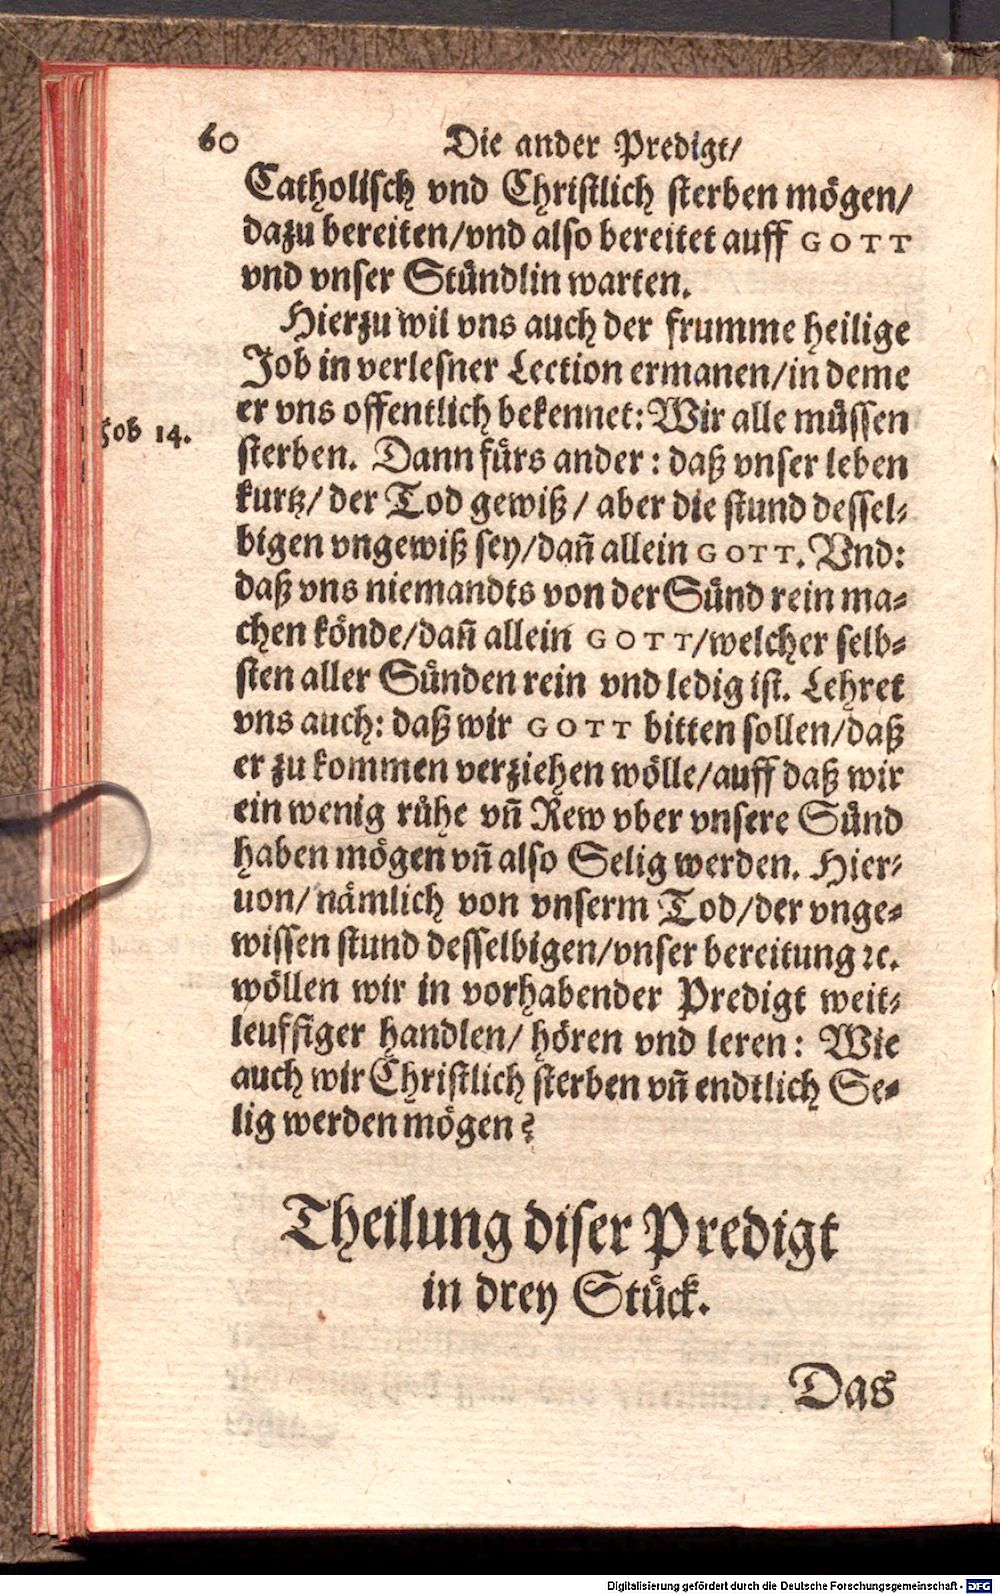 60 Die ander Predigt/
Catholisch vnd Christlich sterben mögen/
dazu bereiten/vnd also bereitet auff GOTT
vnd vnser Stündlin warten.
Hierzu wil vns auch der frumme heilige
Job in verlesner Lection ermanen/in deme
er vns offentlich bekennet: Wir alle müssen
Job 14.
sterben. Dann fürs ander: daß vnser leben
kurtz/ der Tod gewiß/ aber die stund dessel-
bigen vngewiß sey/dañ allein GOTT. Vnd:
daß vns niemandts von der Sünd rein ma-
chen könde/dañ allein GOTT/welcher selb-
sten aller Sünden rein vnd ledig ist. Lehret
vns auch: daß wir GOTT bitten sollen/daß
er zu kommen verziehen wölle/auff daß wir
ein wenig rühe vñ Rew vber vnsere Sünd
haben mögen vñ also Selig werden. Hier-
uon/ nämlich von vnserm Tod/der vnge-
wissen stund desselbigen/vnser bereitung ꝛc.
wöllen wir in vorhabender Predigt weit-
leuffiger handlen/ hören vnd leren: Wie
auch wir Christlich sterben vñ endtlich Se-
lig werden mögen?
Theilung diser Predigt
in drey Stück.
Das
Digitalisierung gefördert durch die Deutsche Forschungsgemeinschaft - DFG